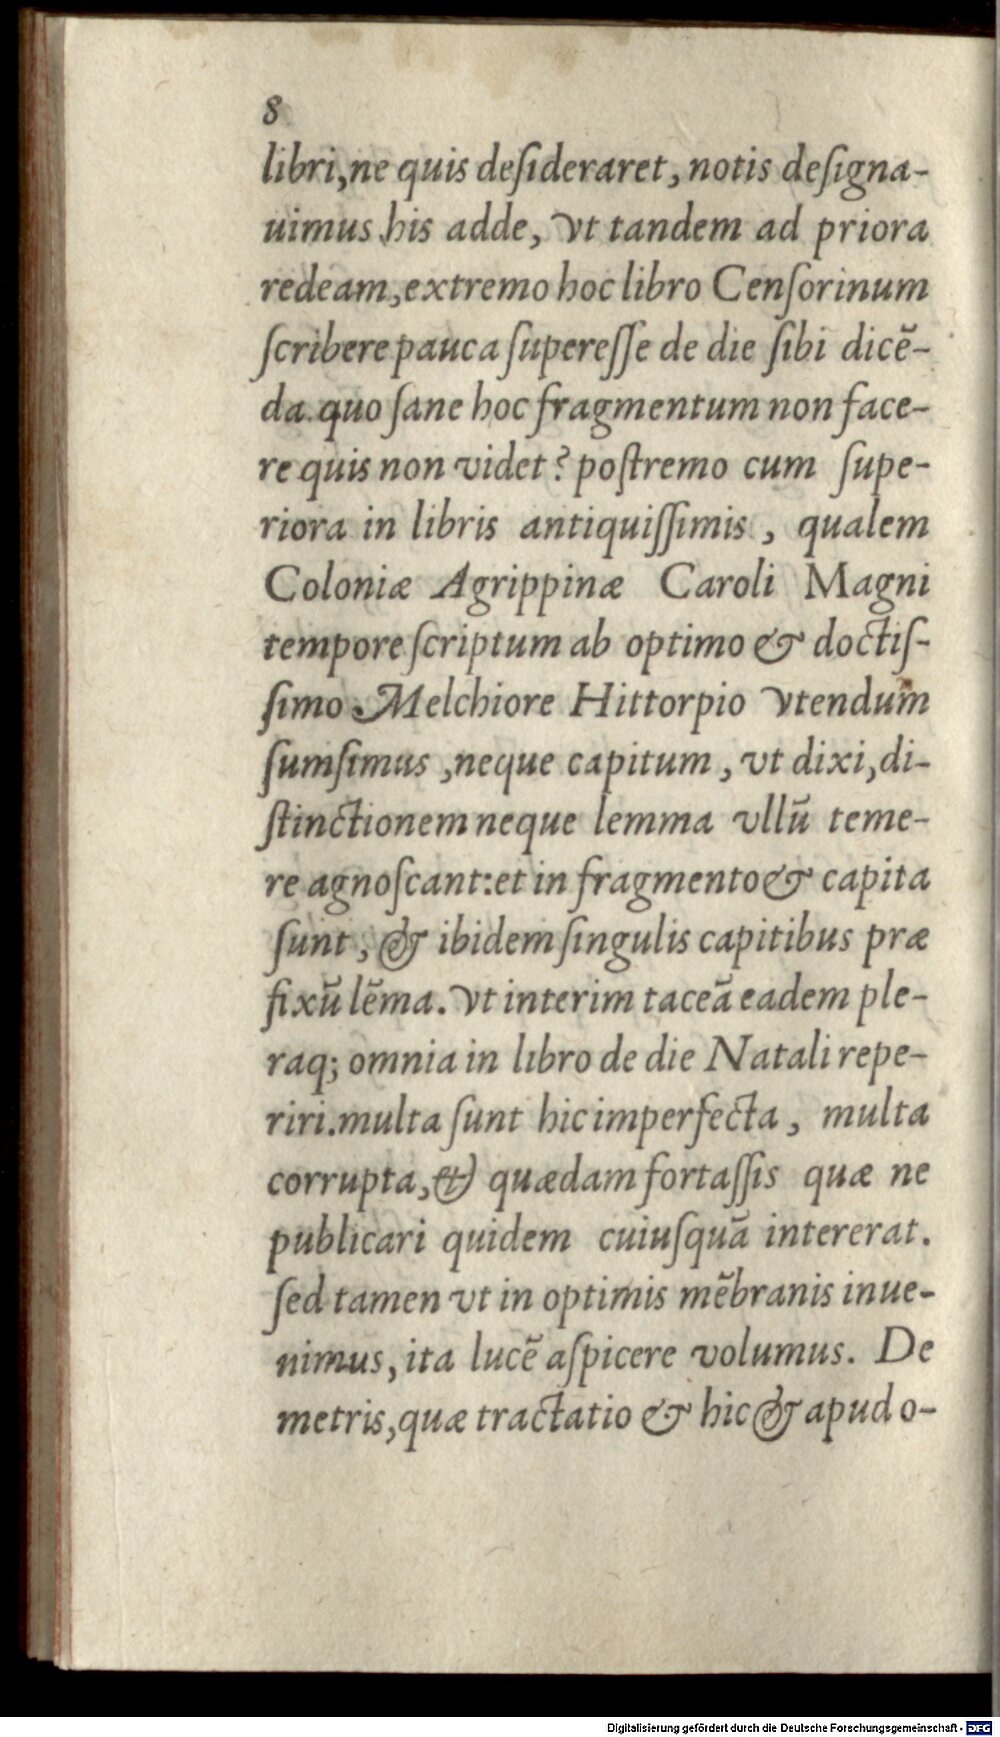 8
libri, ne quis deſideraret, notis deſigna-
uimus his adde, vt tandem ad priora
redeam, extremo hoc libro Cenſorinum
ſcribere pauca ſupereſſe de die ſibi dicẽ-
da. quo ſane hoc fragmentum non face-
re quis non videt? poſtremo cum ſupe-
riora in libris antiquiſſimis, qualem
Coloniæ Agrippinæ Caroli Magni
tempore ſcriptum ab optimo & doctiſ-
ſimo Melchiore Hittorpio vtendum
ſumſimus, neque capitum, vt dixi, di-
ſtinctionem neque lemma vllũ teme-
re agnoſcant: et in fragmento & capita
ſunt, & ibidem ſingulis capitibus præ
fixũ lẽma. vt interim taceã eadem ple-
raq; omnia in libro de die Natali repe-
riri. multa ſunt hic imperfecta, multa
corrupta, & quædam fortaſſis quæ ne
publicari quidem cuiuſquã intererat.
ſed tamen vt in optimis mẽbranis inue-
nimus, ita lucẽ aſpicere volumus. De
metris, quæ tractatio & hic & apud o-
Digitalisierung gefördert durch die Deutsche Forschungsgemeinschaft - DFG